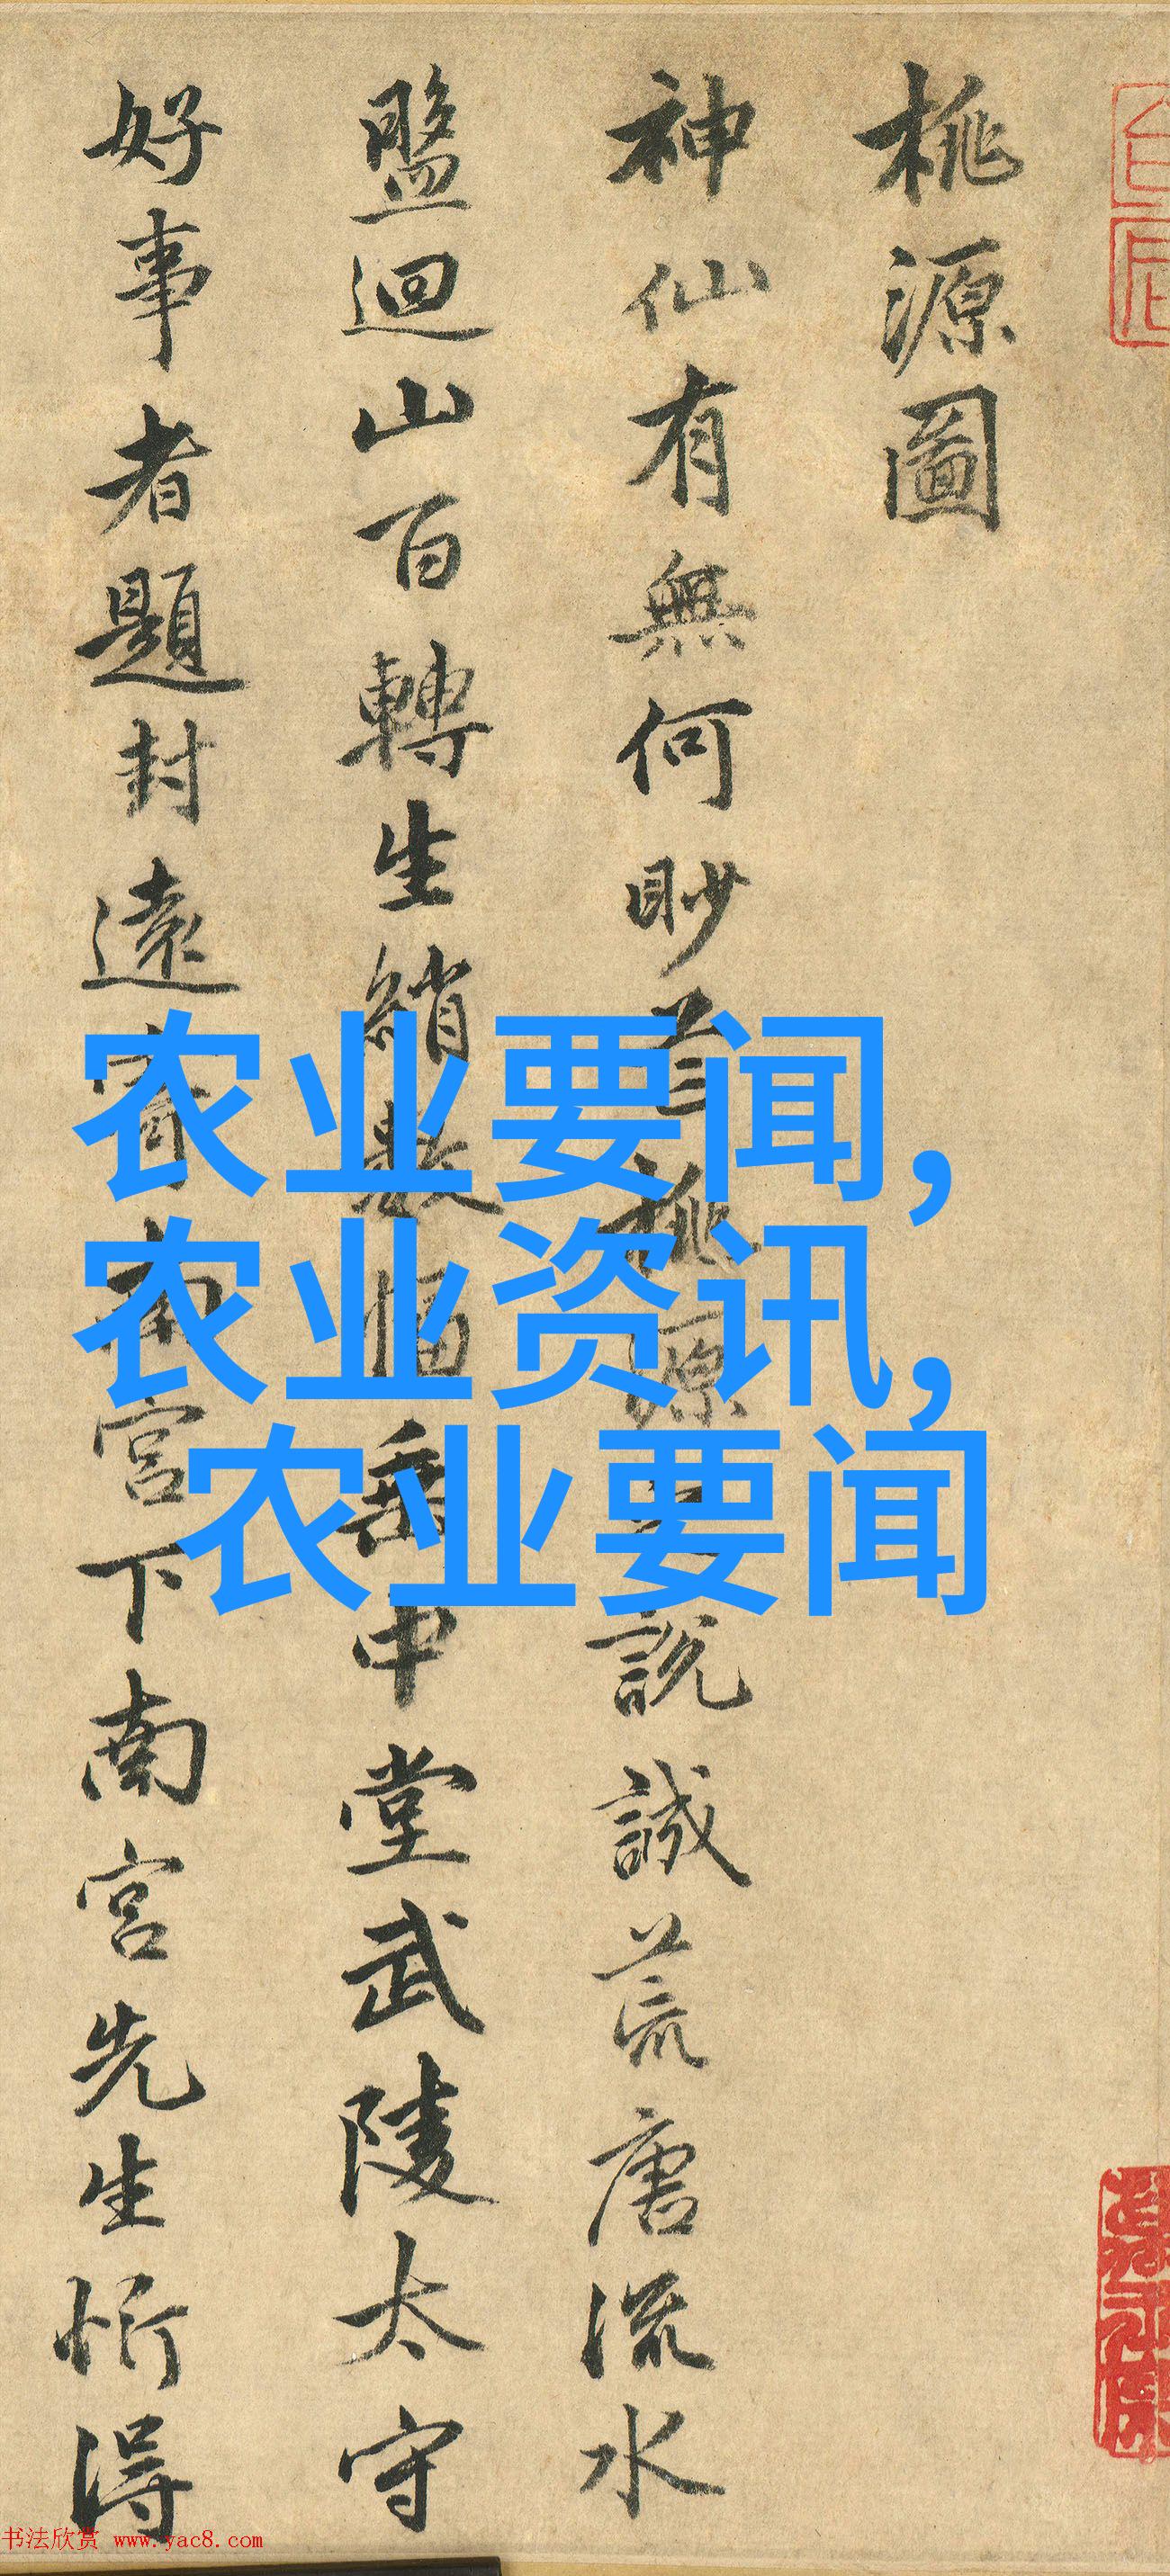 桃源圖
神仙有無何眇芒桃源之說誠荒唐流水
盤迴山百轉生綃數幅垂中堂武陵太守
好事者題封遠寄南宮下南宮先生忻得
农业要闻,
农业资讯,
农业要闻
书法欣赏 www.yac8.com